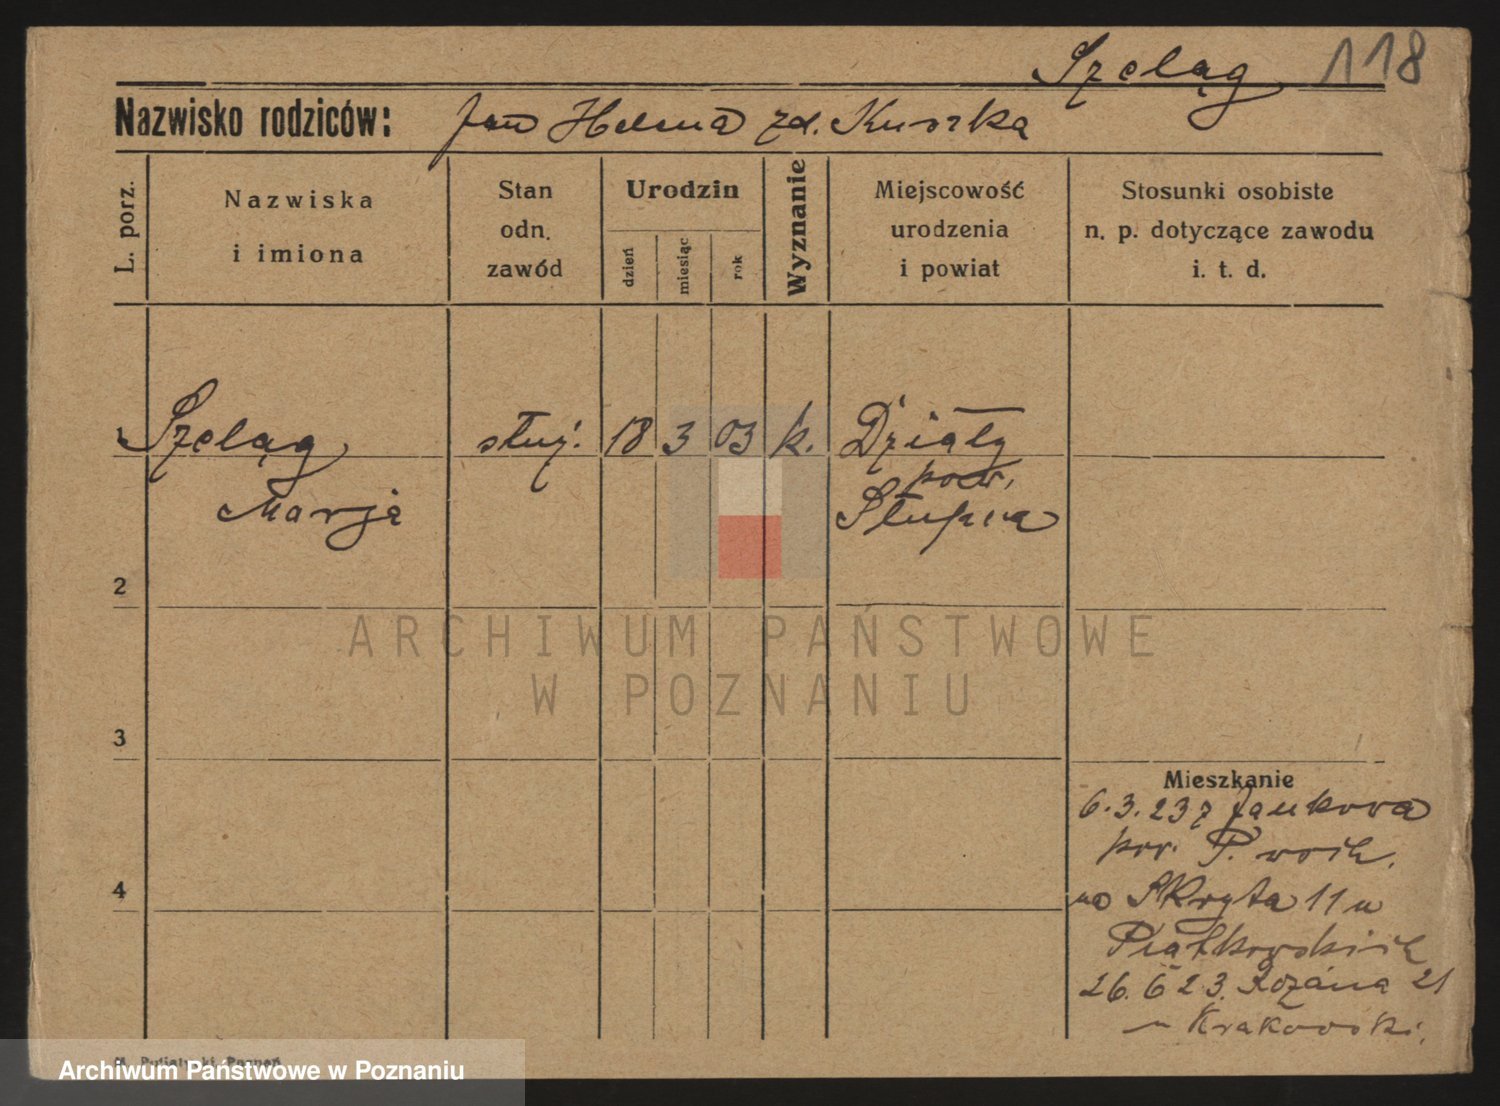 Szeląg 118
Nazwisko rodziców: Jan Helena zd. Kuszka
L. porz.
Nazwiska
i imiona
Stan
odn.
zawód
Urodzin
dzień
miesiąc
rok
Wyznanie
Miejscowość
urodzenia
i powiat
Stosunki osobiste
n. p. dotyczące zawodu
i. t. d.
1 Szeląg służ. 18 3 03 k. Działy
pow.
Marja Słupca
2
ARCHIWUM PAŃSTWOWE
W POZNANIU
3
Mieszkanie
6.3.23 z Jankowa
4
na Skryta 11 u
Piątkowskich
26.6 23. Różana 21
u Krakowski.
Poznań
Archiwum Państwowe w Poznaniu